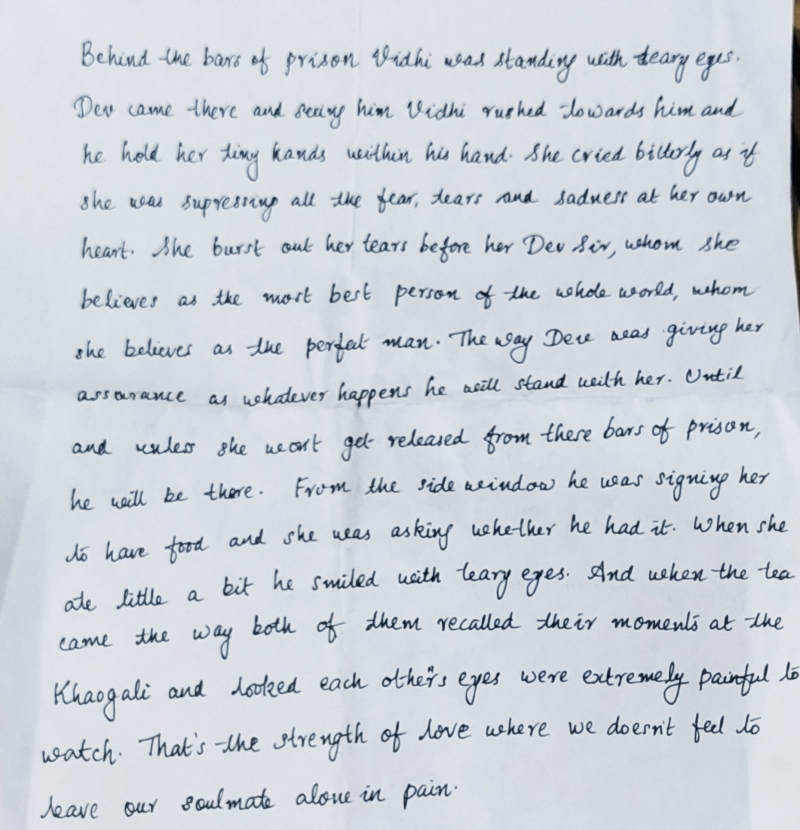 Behind the bars of prison Vidhi was standing with teary eyes.
Dev came there and seeing him Vidhi rushed towards him and
he hold her tiny hands within his hand. She cried bitterly as if
she was supressing all the fear, tears and sadness at her own
heart. She burst out her tears before her Dev Sir, whom she
believes as the most best person of the whole world, whom
she believes as the perfect man. The way Dev was giving her
assurance as whatever happens he will stand with her. Until
and unless she wont get released from these bars of prison,
he will be there. From the side window he was signing her
to have food and she was asking whether he had it. When she
ate little a bit he smiled with teary eyes. And when the tea
came the way both of them recalled their moments at the
Khaogali and looked each other's eyes were extremely painful to
watch. That's the strength of love where we doesn't feel to
leave our soulmate alone in pain.